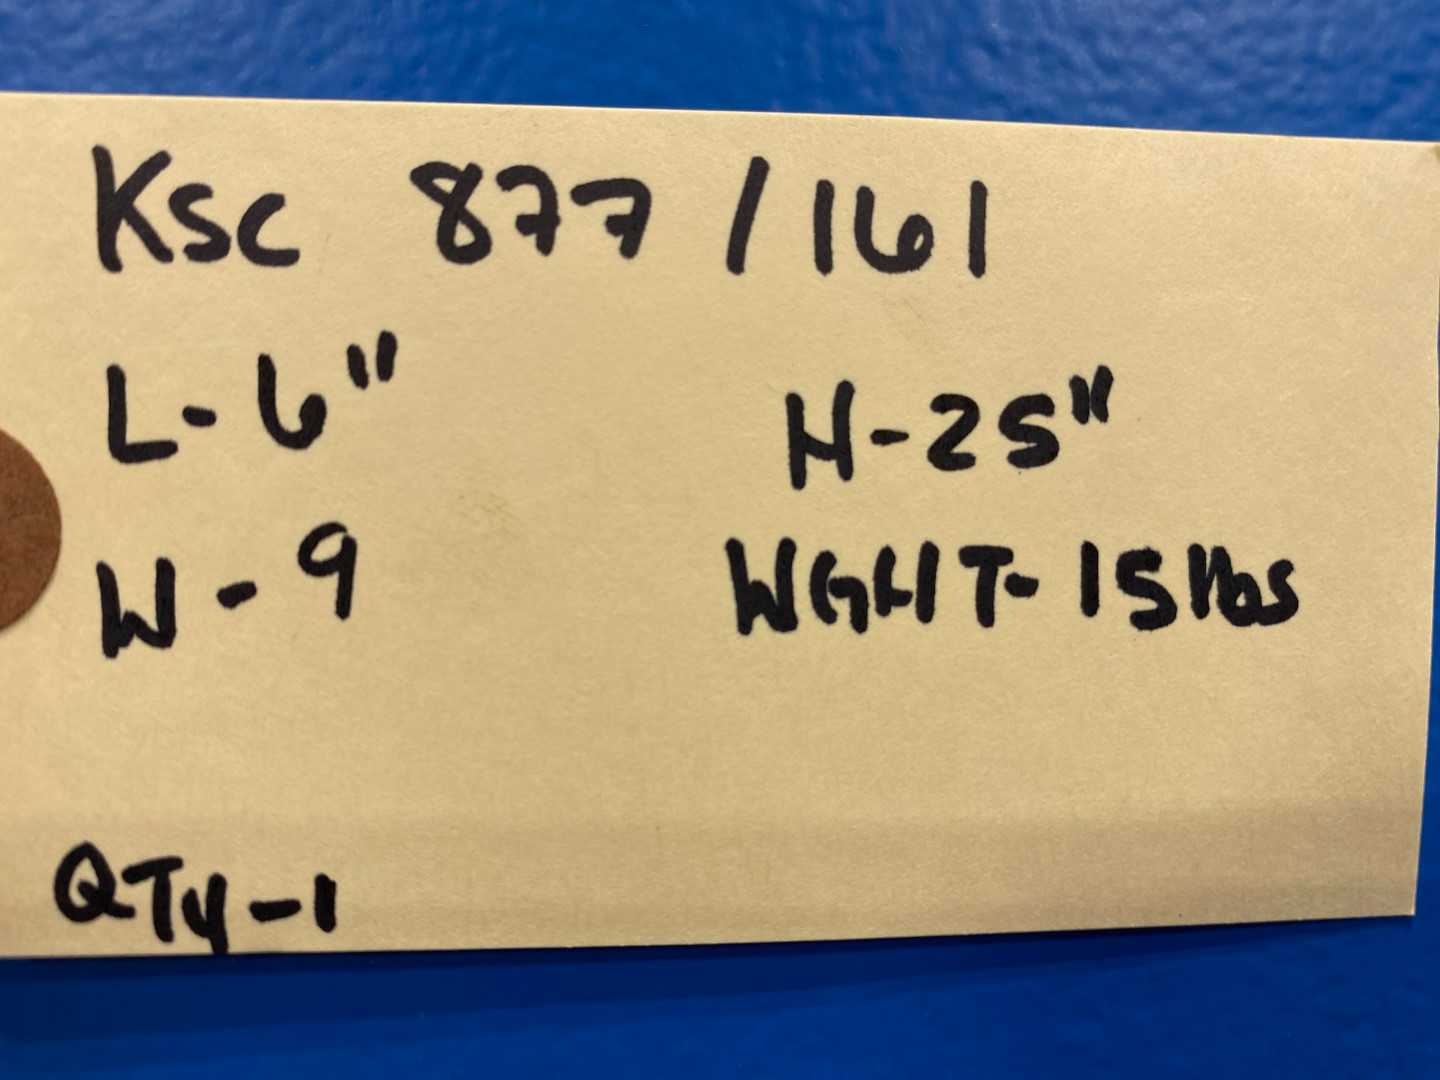 Ksc 877 / 161
L- 6" H-25"
W - 9 WGHT- 15 lbs
QTy-1